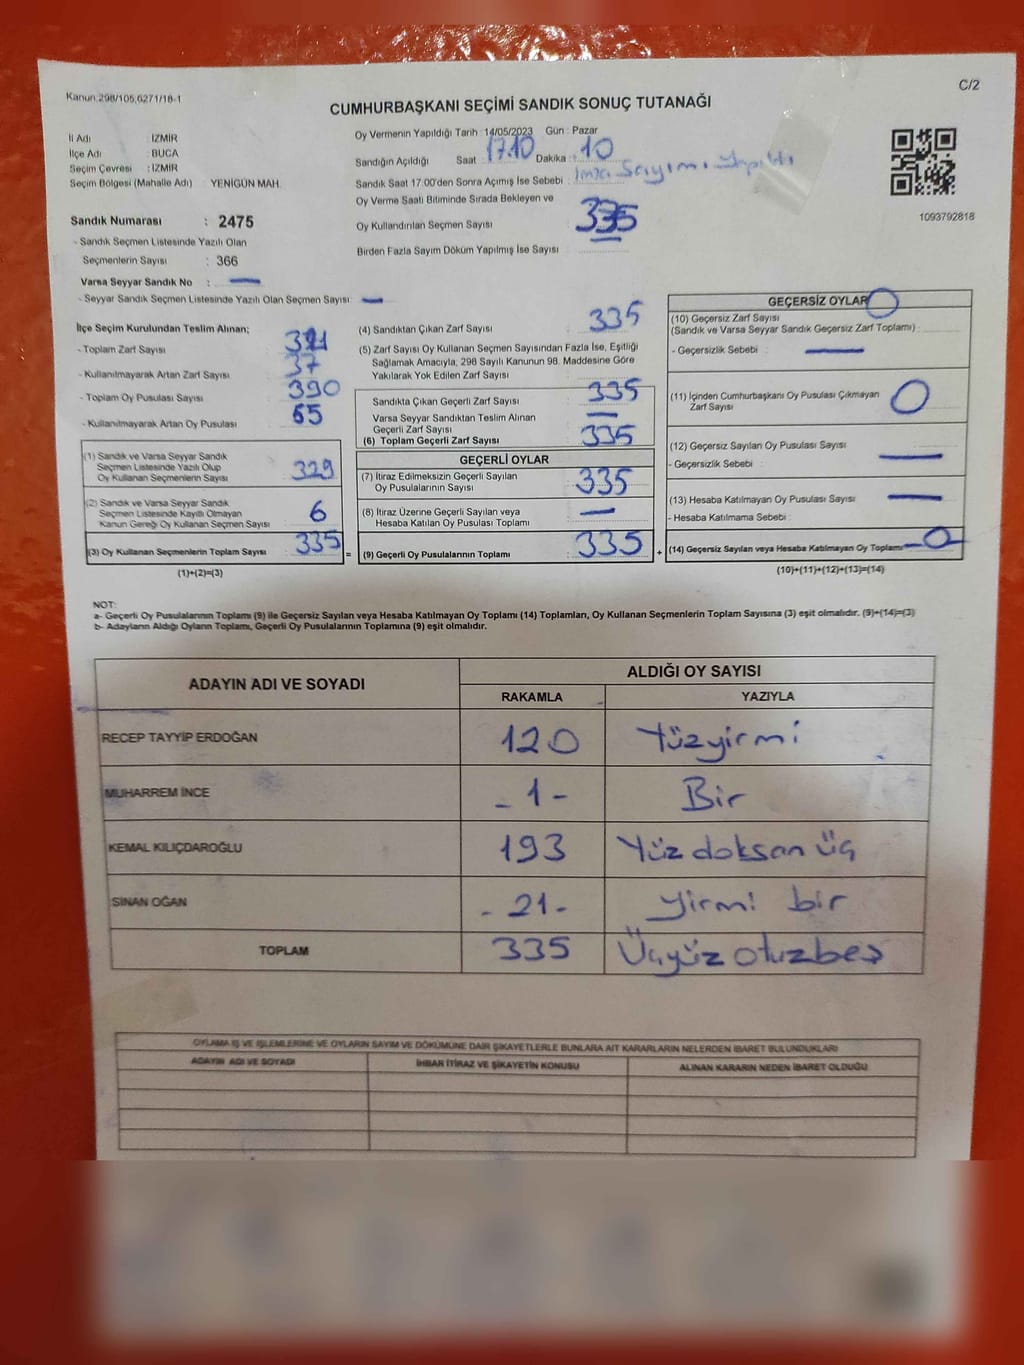 Kanun:298/105,6271/18-1
C/2
CUMHURBAŞKANI SEÇİMİ SANDIK SONUÇ TUTANAĞI
İl Adı : İZMİR
İlçe Adı : BUCA
Seçim Çevresi : İZMİR
Seçim Bölgesi (Mahalle Adı) YENİGÜN MAH.
Sandık Numarası : 2475
- Sandık Seçmen Listesinde Yazılı Olan
Seçmenlerin Sayısı : 366
Varsa Seyyar Sandık No : —
- Seyyar Sandık Seçmen Listesinde Yazılı Olan Seçmen Sayısı: —
Oy Vermenin Yapıldığı Tarih :14/05/2023 Gün : Pazar
Sandığın Açıldığı Saat : 17.10 Dakika : 10
Sandık Saat 17:00'den Sonra Açımış İse Sebebi : İmza Sayımı Yapıldı
Oy Verme Saati Bitiminde Sırada Bekleyen ve
Oy Kullandırılan Seçmen Sayısı 335
Birden Fazla Sayım Döküm Yapılmış İse Sayısı
1093792818
İlçe Seçim Kurulundan Teslim Alınan;
- Toplam Zarf Sayısı
- Kullanılmayarak Artan Zarf Sayısı 37
- Toplam Oy Pusulası Sayısı 390
- Kullanılmayarak Artan Oy Pusulası 65
(1) Sandık ve Varsa Seyyar Sandık
Seçmen Listesinde Yazılı Olup
Oy Kullanan Seçmenlerin Sayısı 329
(2) Sandık ve Varsa Seyyar Sandık
Seçmen Listesinde Kayıtlı Olmayan
Kanun Gereği Oy Kullanan Seçmen Sayısı 6
(3) Oy Kullanan Seçmenlerin Toplam Sayısı 335 =
(1)+(2)=(3)
(4) Sandıktan Çıkan Zarf Sayısı 335
(5) Zarf Sayısı Oy Kullanan Seçmen Sayısından Fazla İse, Eşitliği
Sağlamak Amacıyla, 298 Sayılı Kanunun 98. Maddesine Göre
Yakılarak Yok Edilen Zarf Sayısı
Sandıkta Çıkan Geçerli Zarf Sayısı 335
Varsa Seyyar Sandıktan Teslim Alınan
Geçerli Zarf Sayısı —
(6) Toplam Geçerli Zarf Sayısı 335
GEÇERLİ OYLAR
(7) İtiraz Edilmeksizin Geçerli Sayılan
Oy Pusulalarının Sayısı 335
(8) İtiraz Üzerine Geçerli Sayılan veya
Hesaba Katılan Oy Pusulası Toplamı —
(9) Geçerli Oy Pusulalarının Toplamı 335 +
GEÇERSİZ OYLAR 0
(10) Geçersiz Zarf Sayısı
(Sandık ve Varsa Seyyar Sandık Geçersiz Zarf Toplamı) :
- Geçersizlik Sebebi : —
(11) İçinden Cumhurbaşkanı Oy Pusulası Çıkmayan
Zarf Sayısı 0
(12) Geçersiz Sayılan Oy Pusulası Sayısı
- Geçersizlik Sebebi : —
(13) Hesaba Katılmayan Oy Pusulası Sayısı —
- Hesaba Katılmama Sebebi :
(14) Geçersiz Sayılan veya Hesaba Katılmayan Oy Toplamı -0-
(10)+(11)+(12)+(13)=(14)
NOT:
a- Geçerli Oy Pusulalarının Toplamı (9) ile Geçersiz Sayılan veya Hesaba Katılmayan Oy Toplamı (14) Toplamları, Oy Kullanan Seçmenlerin Toplam Sayısına (3) eşit olmalıdır. (9)+(14)=(3)
b- Adayların Aldığı Oyların Toplamı, Geçerli Oy Pusulalarının Toplamına (9) eşit olmalıdır.
ADAYIN ADI VE SOYADI
ALDIĞI OY SAYISI
RAKAMLA YAZIYLA
RECEP TAYYİP ERDOĞAN 120 Yüzyirmi
MUHARREM İNCE - 1 - Bir
KEMAL KILIÇDAROĞLU 193 Yüz doksan üç
SİNAN OĞAN - 21 - yirmi bir
TOPLAM 335 Üçyüz otuzbeş
OYLAMA İŞ VE İŞLEMLERİNE VE OYLARIN SAYIM VE DÖKÜMÜNE DAİR ŞİKAYETLERLE BUNLARA AİT KARARLARIN NELERDEN İBARET BULUNDUKLARI
ADAYIN ADI VE SOYADI İHBAR İTİRAZ VE ŞİKAYETİN KONUSU ALINAN KARARIN NEDEN İBARET OLDUĞU